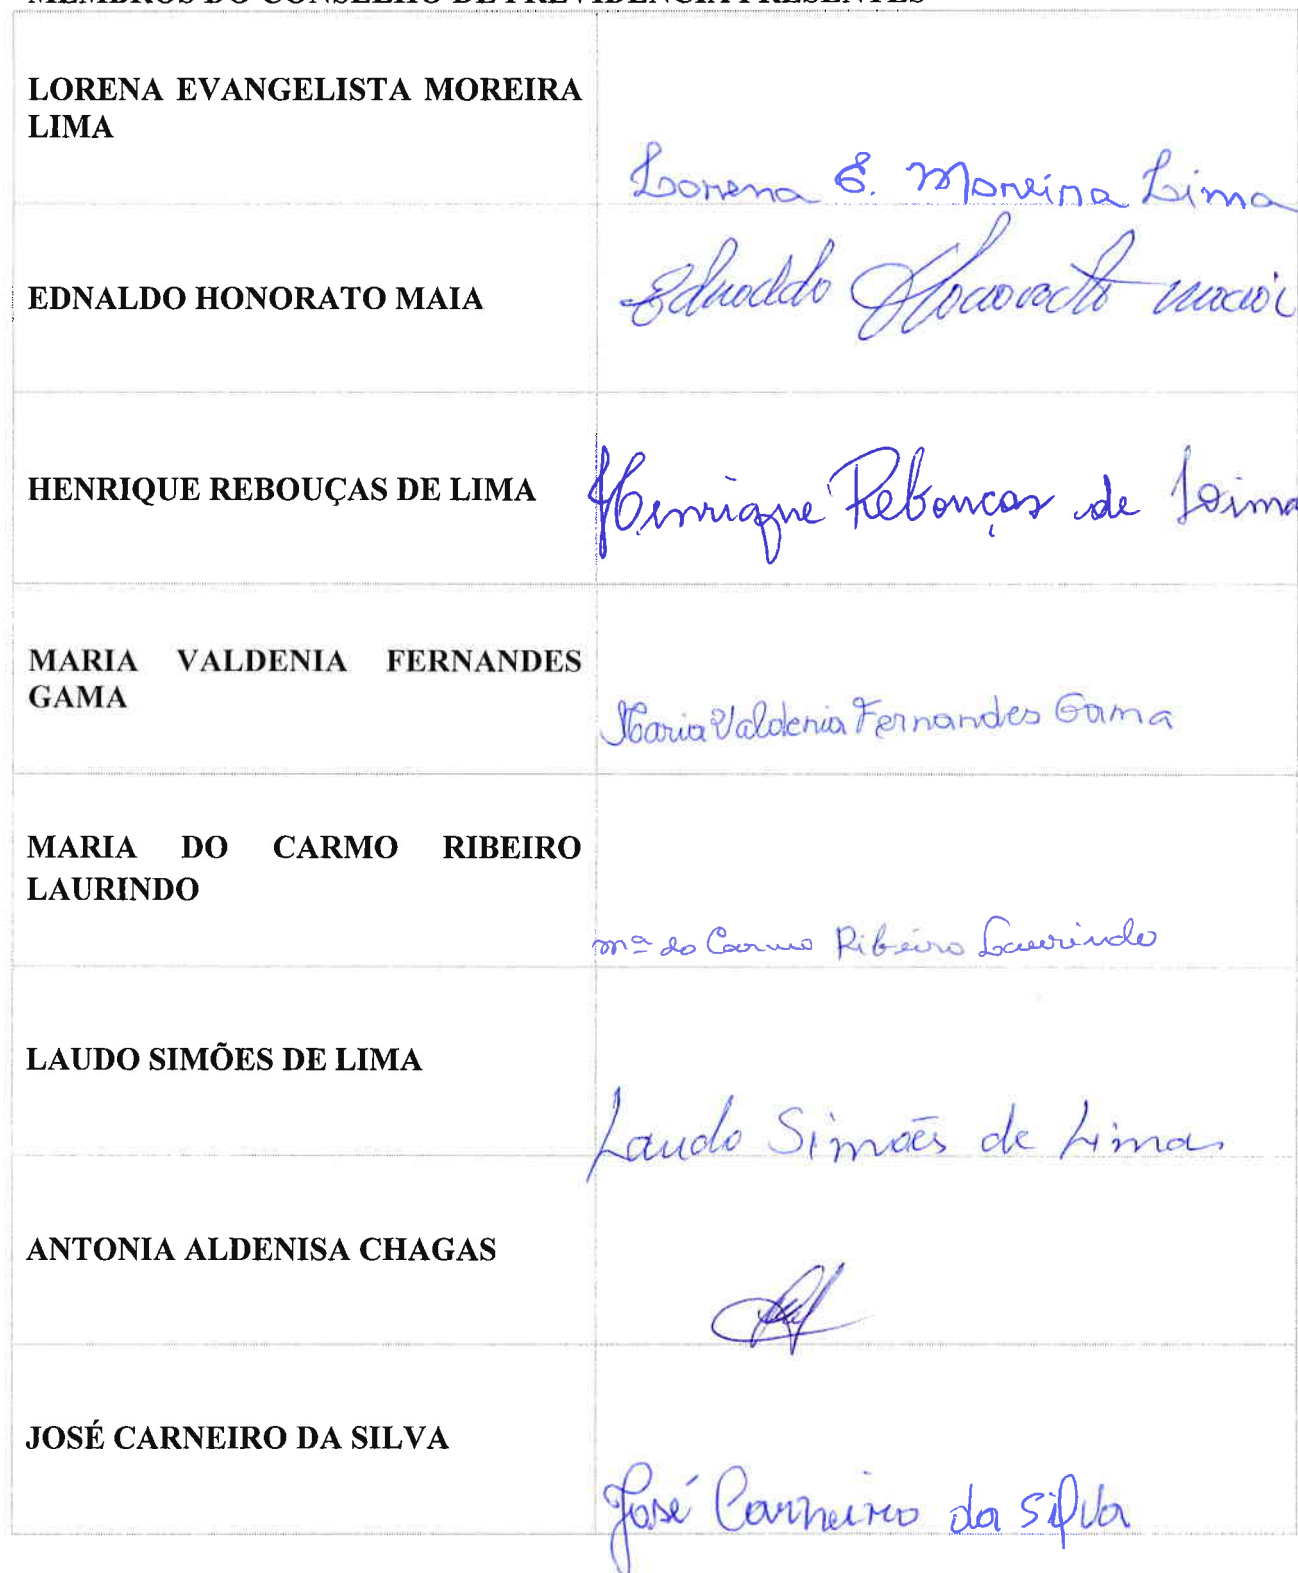 MEMBROS DO CONSELHO DE PREVIDÊNCIA PRESENTES
LORENA EVANGELISTA MOREIRA
LIMA
Lorena E. Moreira Lima
EDNALDO HONORATO MAIA
Ednaldo Honorato Maia
HENRIQUE REBOUÇAS DE LIMA
Henrique Rebouças de Lima
MARIA VALDENIA FERNANDES
GAMA
Maria Valdenia Fernandes Gama
MARIA DO CARMO RIBEIRO
LAURINDO
Mª do Carmo Ribeiro Laurindo
LAUDO SIMÕES DE LIMA
Laudo Simões de Lima
ANTONIA ALDENISA CHAGAS
JOSÉ CARNEIRO DA SILVA
José Carneiro da Silva